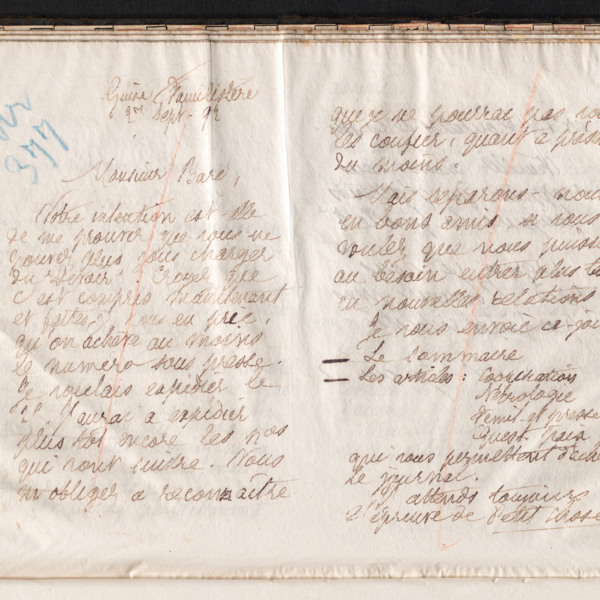 377
Guise Familistère
9 Sept. 92
Monsieur Baré,
Votre intention est-elle
de me prouver que vous ne
pouvez plus vous charger
du "Devoir". Croyez que
c'est compris maintenant
et faites, je vous en prie,
qu'on achève au moins
le numéro sous presse.
Je voulais expédier le
J'aurai à expédier
plus tôt encore les nos
qui vont suivre. Vous
m'obligez à reconnaître
que je ne pourrai pas vous
les confier, quant à présent
du moins.
Mais séparons-nous
en bons amis si vous
voulez que nous puissions
au besoin entrer plus tard
en nouvelles relations
Je vous envoie ce jour
— Le Sommaire
— Les articles: Coopération
Nécrologie
Fémin. et presse
Quest. Paix
qui vous permettent d'achever
le journal.
J'attends toujours
l'épreuve de Petit Chose